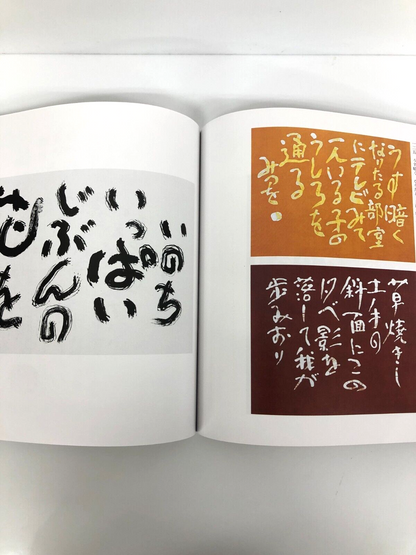 いのち
いっぱい
じぶんの
花を
うす暗く
なりたる部室
にテレビみて
一人いる子の
うしろを
通る
みつを
草焼きし
土手の
斜面にこの
夕べ影を
落して我が
歩みおり